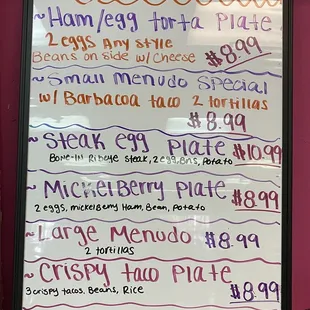 ~Ham/egg torta Plate
2 eggs Any style
Beans on side w/ cheese $8.99
~Small Menudo Special
w/ Barbacoa taco 2 tortillas
$8.99
~Steak egg Plate $10.99
Bone-in Ribeye steak, 2 egg, Bns, Potato
~Mickelberry Plate $8.99
2 eggs, mickelberry Ham, Bean, Potato
~Large Menudo $8.99
2 tortillas
~Crispy taco Plate
3 crispy tacos, Beans, Rice $8.99